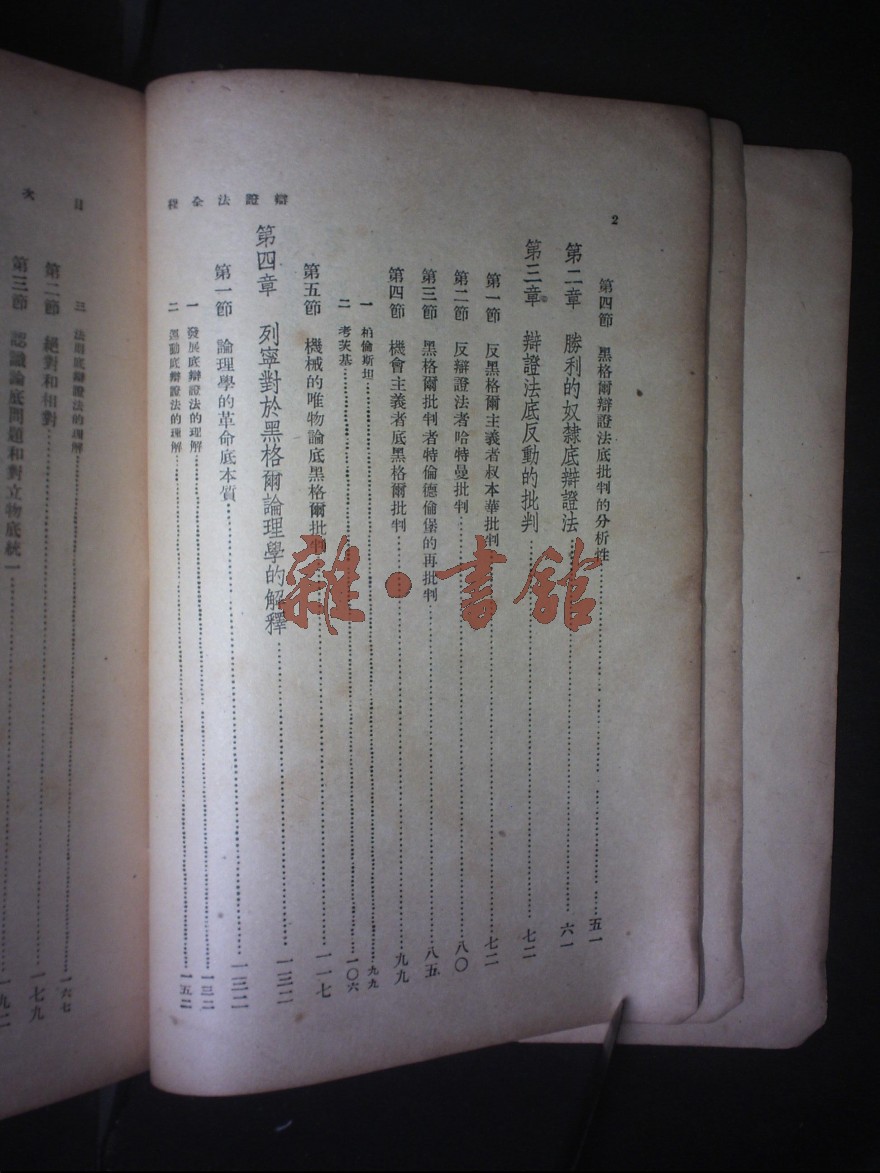 2
辯證法全程
第四節 黑格爾辯證法底批判的分析性 五一
第二章 勝利的奴隸底辯證法 六一
第三章 辯證法底反動的批判 七二
第一節 反黑格爾主義者叔本華批判 七二
第二節 反辯證法者哈特曼批判 八〇
第三節 黑格爾批判者特倫德倫堡的再批判 八五
第四節 機會主義者底黑格爾批判 九九
一 柏倫斯坦 九九
二 考茨基 一〇六
第五節 機械的唯物論底黑格爾批判 一一七
第四章 列寧對於黑格爾論理學的解釋 一三二
第一節 論理學的革命底本質 一三二
一 發展底辯證法的理解 一三二
二 運動底辯證法的理解 一五二
目次
三 法則底辯證法的理解 一六七
第二節 絕對和相對 一七九
第三節 認識論底問題和對立物底統一 一九二
雜·書館